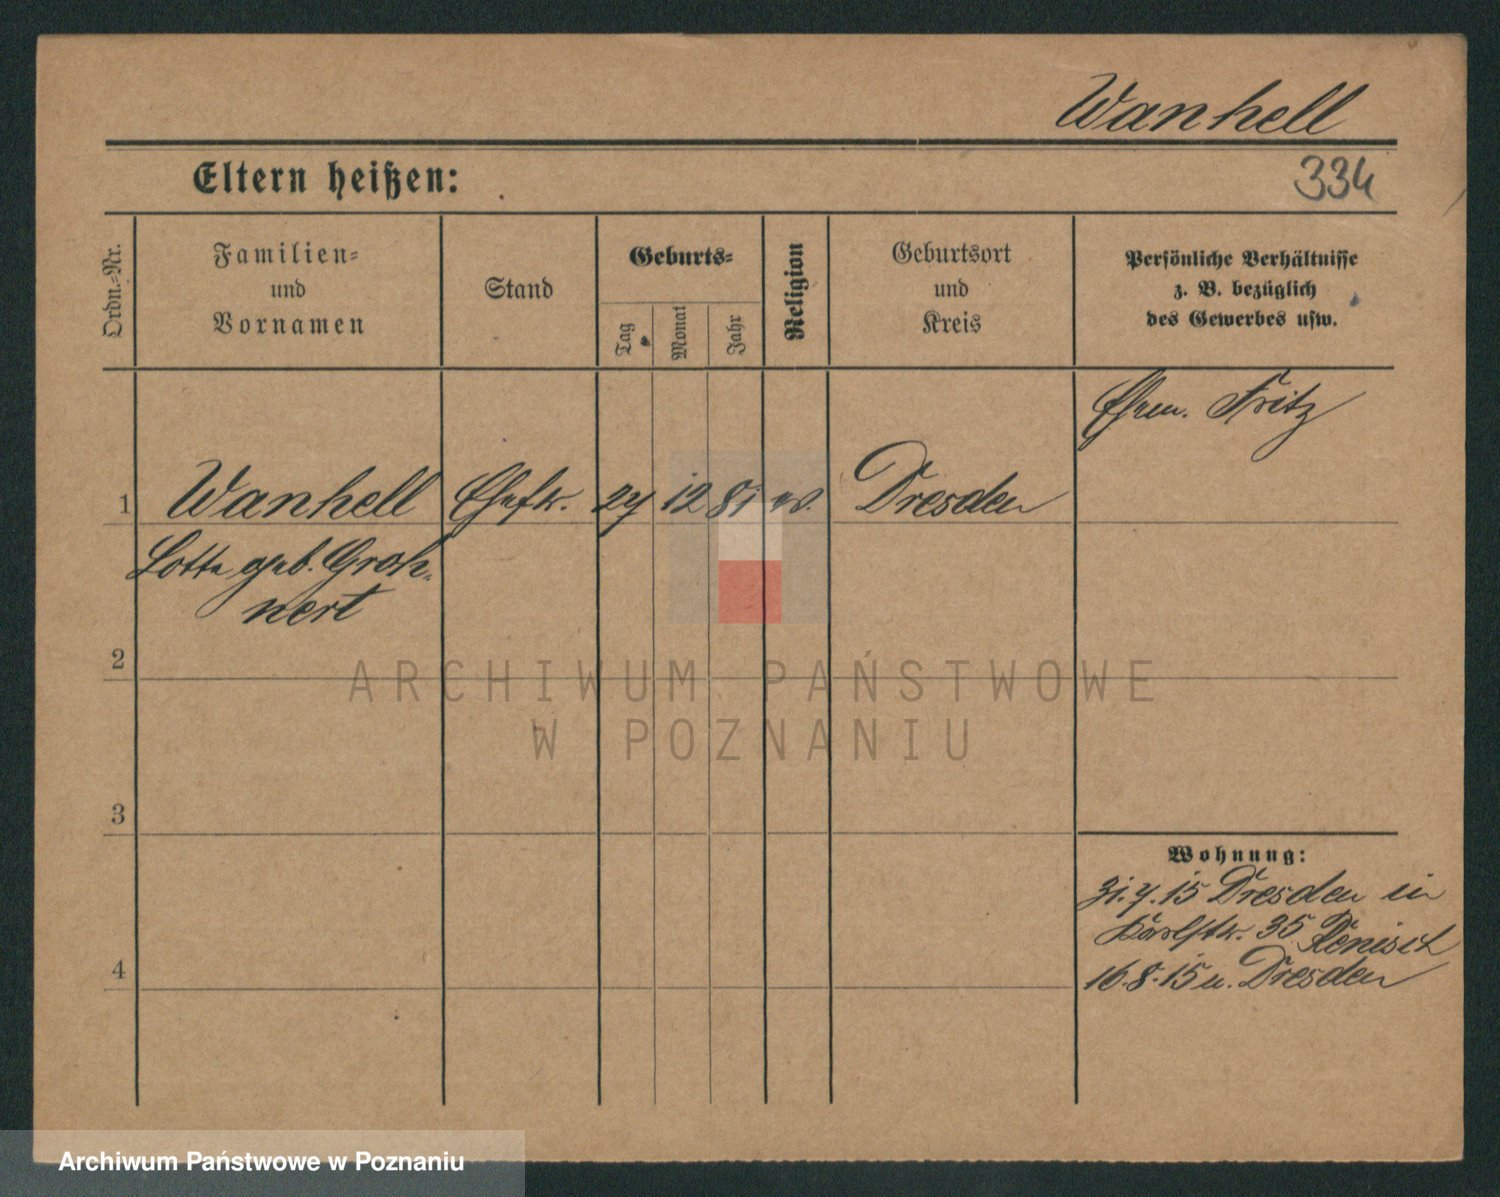 Wanhell
Eltern heißen:
334
Ordn.-Nr.
Familien-
und
Vornamen
Stand
Geburts-
Tag
Monat
Jahr
Religion
Geburtsort
und
Kreis
Persönliche Verhältnisse
z. B. bezüglich
des Gewerbes usw.
Ehem. Fritz
1 Wanhell Ehefr. 27 12 81 Dresden
Lotte geb. Groh-
nert
2
ARCHIWUM PAŃSTWOWE
W POZNANIU
3
Wohnung:
31.7.15 Dresden in
35
4
16.8.15 n. Dresden
Archiwum Państwowe w Poznaniu